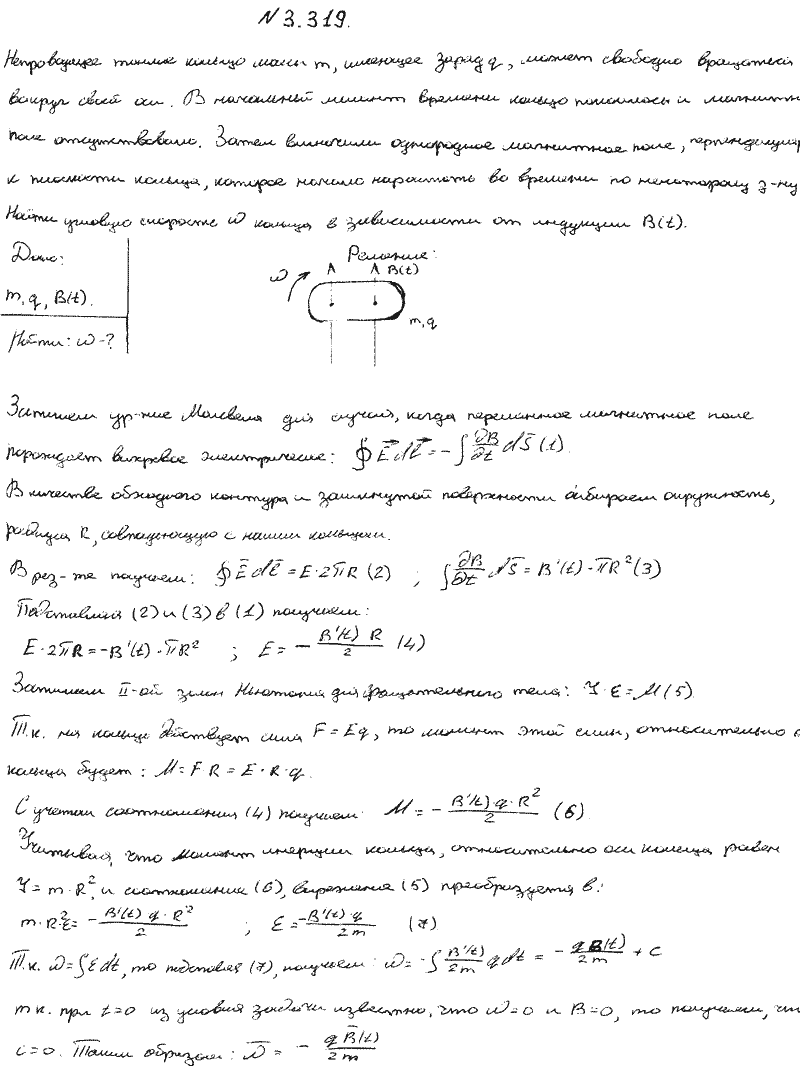 N 3.319.
Непроводящее тонкое кольцо массы m, имеющее заряд q, может свободно вращаться
вокруг своей оси. В начальный момент времени кольцо покоилось и магнитн
поле отсутствовало. Затем включили однородное магнитное поле, перпендикуляр
к плоскости кольца, которое начало нарастать во времени по некоторому з-ну
Найти угловую скорость ω кольца в зависимости от индукции B(t).
Дано:
m, q, B(t).
Найти: ω-?
Решение:
ω B(t)
m, q
Запишем ур-ние Максвелла для случая, когда переменное магнитное поле
порождает вихревое электрическое: ∮E⃗dℓ⃗ = -∫∂B/∂t dS̄ (1).
В качестве обходного контура и замкнутой поверхности выбираем окружность,
радиуса R, совпадающую с нашим кольцом.
В рез-те получаем: ∮Ēdℓ̄ = E·2πR (2) ; ∫∂B̄/∂t dS̄ = B'(t)·πR² (3)
Подставляя (2) и (3) в (1) получаем:
E·2πR = -B'(t)·πR² ; E = - B'(t) R/2 (4)
Запишем II-ой закон Ньютона для вращательного тела: J·ε = M (5)
Т.к. на кольцо действует сила F = Eq, то момент этой силы, относительно о
кольца будет: M = F R = E·R·q.
С учетом соотношения (4) получаем: M = - B'(t)·q·R²/2 (6)
Учитывая, что момент инерции кольца, относительно оси кольца равен
J = m·R², и соотношение (6), выражение (5) преобразуется в:
m·R²·ε = - B'(t)·q·R²/2 ; ε = - B'(t)·q/2m (7)
Т.к. ω = ∫εdt, то подставляя (7), получаем: ω = -∫B'(t)/2m qdt = - qB(t)/2m + c
т.к. при t=0 из условия задачи известно, что ω=0 и B=0, то получаем, чт
c=0. Таким образом: ω̄ = - qB̄(t)/2m